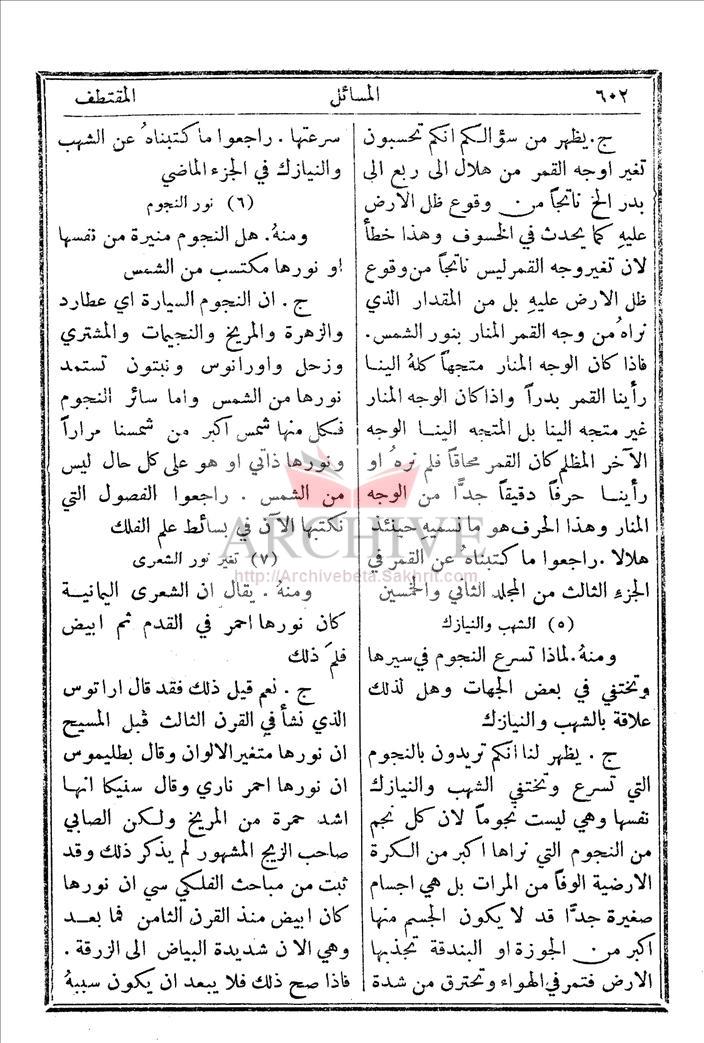 ٦٠٢ المسائل المقتطف
ج. يظهر من سؤالكم انكم تحسبون
تغير اوجه القمر من هلال الى ربع الى
بدر الخ ناتجاً من وقوع ظل الارض
عليهِ كما يحدث في الخسوف وهذا خطأ
لان تغير وجه القمر ليس ناتجاً من وقوع
ظل الارض عليهِ بل من المقدار الذي
نراهُ من وجه القمر المنار بنور الشمس.
فاذا كان الوجه المنار متجهاً كلهُ الينا
رأينا القمر بدراً واذا كان الوجه المنار
غير متجه الينا بل المتجه الينا الوجه
الآخر المظلم كان القمر محاقاً فلم نرهُ او
رأينا حرفاً دقيقاً جدًّا من الوجه
المنار وهذا الحرف هو ما نسميهِ حينئذ
هلالا. راجعوا ما كتبناهُ عن القمر في
الجزء الثالث من المجلد الثاني والخمسين
(٥) الشهب والنيازك
ومنهُ. لماذا تسرع النجوم في سيرها
وتختفي في بعض الجهات وهل لذلك
علاقة بالشهب والنيازك
ج. يظهر لنا انكم تريدون بالنجوم
التي تسرع وتختفي الشهب والنيازك
نفسها وهي ليست نجوماً لان كل نجم
من النجوم التي نراها اكبر من الكرة
الارضية الوفاً من المرات بل هي اجسام
صغيرة جدًّا قد لا يكون الجسم منها
اكبر من الجوزة او البندقة تجذبها
الارض فتمر في الهواء وتحترق من شدة
سرعتها. راجعوا ما كتبناهُ عن الشهب
والنيازك في الجزء الماضي
(٦) نور النجوم
ومنهُ. هل النجوم منيرة من نفسها
او نورها مكتسب من الشمس
ج. ان النجوم السيارة اي عطارد
والزهرة والمريخ والنجيات والمشتري
وزحل واورانوس ونبتون تستمد
نورها من الشمس واما سائر النجوم
فكل منها شمس اكبر من شمسنا مراراً
ونورها ذاتي او هو على كل حال ليس
من الشمس. راجعوا الفصول التي
نكتبها الآن في بسائط علم الفلك
(٧) تغير نور الشعرى
ومنهُ. يقال ان الشعرى اليمانية
كان نورها احمر في القدم ثم ابيض
فلمَ ذلك
ج. نعم قيل ذلك فقد قال اراتوس
الذي نشأ في القرن الثالث قبل المسيح
ان نورها متغير الالوان وقال بطليموس
ان نورها احمر ناري وقال سنيكا انها
اشد حمرة من المريخ ولكن الصابي
صاحب الزيج المشهور لم يذكر ذلك وقد
ثبت من مباحث الفلكي سي ان نورها
كان ابيض منذ القرن الثامن فما بعد
وهي الان شديدة البياض الى الزرقة.
فاذا صح ذلك فلا يبعد ان يكون سببهُ
ARCHIVE
http://Archivebeta.Sakhrit.com